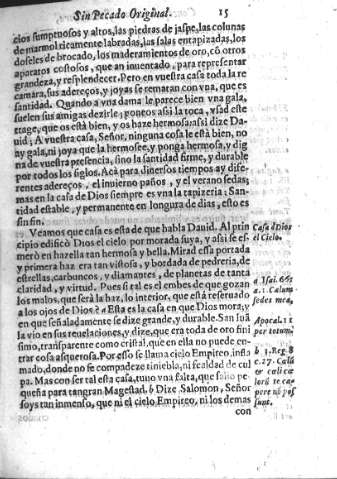 Sin Pecado Original. 15
cios sumptuosos y altos, las piedras de jaspe, las colunas
de marmol ricamente labradas, las salas entapizadas, los
doseles de brocado, los maderamientos de oro, cō otros
aparatos costosos, que an inuentado, para representar
grandeza, y resplendecer. Pero en vuestra casa toda la re
camara, sus adereços, y joyas se rematan con vna, que es
santidad. Quando a vna dama le parece bien vna gala,
suelen sus amigas dezirle; poneos assi la toca, vsad este
trage, que os està bien, y os haze hermosa: assi dize Da-
uid; A vuestra casa, Señor, ninguna cosa le està bien, no
ay gala, ni joya que la hermosee, y ponga hermosa, y dig
na de vuestra presencia, sino la santidad firme, y durable
por todos los siglos. Acà para diuersos tiempos ay dife-
rentes adereços, el inuierno paños, y el verano sedas;
mas en la casa de Dios siempre es vna la tapizeria: San-
tidad estable, y permanente en longura de dias, esto es
sin fin.
Veamos que casa es esta de que habla Dauid. Al prin
cipio edificò Dios el cielo por morada suya, y assi se es-
merò en hazella tan hermosa y bella. Mirad essa portada
y primera haz era tan vistosa, y bordada de pedreria, de
estrellas, carbuncos, y diamantes, de planetas de tanta
claridad, y virtud. Pues si tal es el embes de que gozan
los malos, que serà la haz, lo interior, que està reseruado
a los ojos de Dios? a Esta es la casa en que Dios mora; y
en que señaladamente se dize grande, y durable. San Iuā
la vio en sus reuelaciones, y dize, que era toda de oro fini
simo, transparente como cristal, que en ella no puede en-
trar cosa asquerosa. Por esso se llama cielo Empireo, infla
mado, donde no se compadeze tiniebla, ni fealdad de cul
pa. Mas con ser tal esta casa, tuuo vna falta, que fue pe-
queña para tan gran Magestad. b Dize Salomon, Señor
soys tan inmenso, que ni el cielo Empireo, ni los demas
con
Casa d Dios
el Cielo.
a Isai. 66
a. 1. Cælum
sedes mea,
Apocal. 21
per totum.
b 3. Reg. 8
c. 27. Cælū
& cæli cæ
lorū te ca-
pere nō pos
sunt.